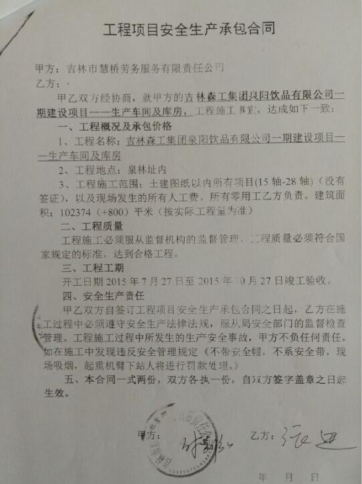 工程项目安全生产承包合同
甲方：吉林市慧桥劳务服务有限责任公司
乙方：
甲乙双方经协商，就甲方的吉林森工集团泉阳饮品有限公司一
期建设项目——生产车间及库房，工程施工事宜，达成如下一致：
一、工程概况及承包价格
1、工程名称：吉林森工集团泉阳饮品有限公司一期建设项目—
—生产车间及库房
2、工程地点：泉林址内
3、工程施工范围：土建图纸以内所有项目(15轴-28轴)（没有
签证），以及现场发生的所有人工费、所有零用工乙方负责。建筑面
积：102374（+800）平米（按实际工程量为准）
二、工程质量
工程施工必须服从监督机构的监督管理，工程质量必须符合国
家规定的标准，达到合格工程。
三、工程工期
开工日期2015年7月27日至2015年10月27日竣工验收。
四、安全生产责任
甲乙双方自签订工程项目安全生产承包合同之日起，乙方在施
工过程中必须遵守安全生产法律法规，服从局安全部门的监督检查
管理。工程施工过程中所发生的生产安全事故，甲方不负任何责任。
如在施工中发现违反安全管理规定（不带安全帽、不系安全带、现
场吸烟，起重机臂下站人将进行罚款处理。）
五、本合同一式两份，双方各执一份，自双方签字盖章之日起
生效。
甲方：
乙方：
年 月 日